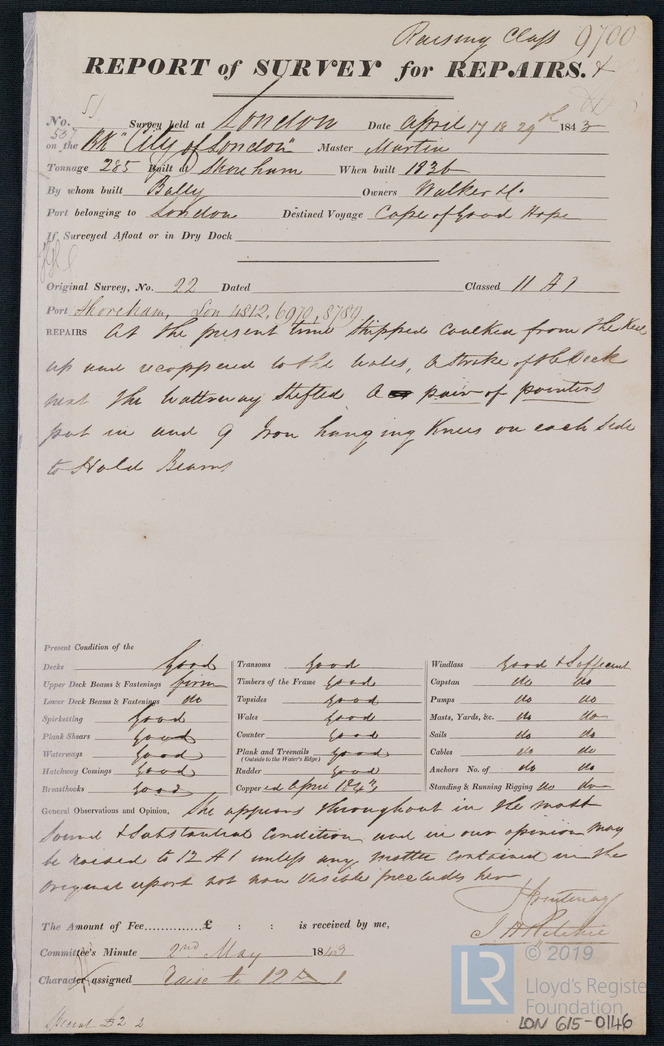 Raising Class 9700
REPORT of SURVEY for REPAIRS.
51
No. 557 Survey held at London Date April 17 18 29th 1843
on the Bk "City of London" Master Martin
Tonnage 285 Built at Shoreham When built 1836
By whom built Bally Owners Walker &c.
Port belonging to London Destined Voyage Cape of Good Hope
If Surveyed Afloat or in Dry Dock
Original Survey, No. 22 Dated Classed 11 A 1
Port Shoreham, Lon 4812, 6970, 8789
REPAIRS At the present time stripped caulked from the Keel
up and recoppered to the wales, a strake of the Deck
next the waterway shifted a pair of pointers
put in and 9 Iron hanging Knees on each side
to Hold Beams
Present Condition of the
Decks Good Transoms Good Windlass Good & Sufficient
Upper Deck Beams & Fastenings firm Timbers of the Frame Good Capstan do do
Lower Deck Beams & Fastenings do Topsides Good Pumps do do
Spirketting Good Wales Good Masts, Yards, &c. do do
Plank Shears Good Counter Good Sails do do
Waterways Good Plank and Treenails Good Cables do do
(Outside to the Water's Edge)
Hatchway Comings Good Rudder Good Anchors No. of do do
Breasthooks Good Coppered April 1843 Standing & Running Rigging do do
General Observations and Opinion, She appears throughout in the most
sound & substantial condition and in our opinion may
be raised to 12 A 1 unless any matter contained in the
original report not now visible precludes her
J H Ritchie
The Amount of Fee..............£ : : is received by me,
Committee's Minute 2nd May 1843
Character assigned Raise to 12 A 1
© 2019
LR
Lloyd's Register
Foundation
LON 615-0146